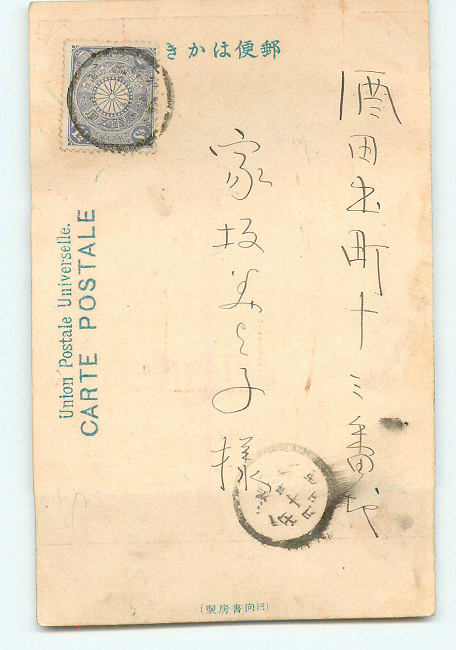 郵便はかき
酒田 町十三番地
家坂 子様
Union Postale Universelle.
CARTE POSTALE
(日向書房製)